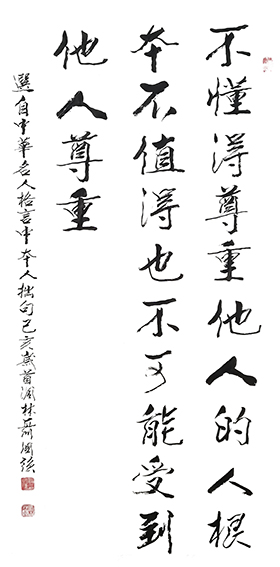 不懂得尊重他人的人根
本不值得也不可能受到
他人尊重
选自中华名人格言中本人拙句己亥岁首浦林聂国强